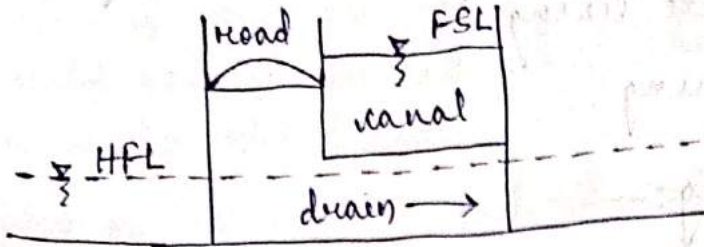 road FSL
canal
HFL
drain